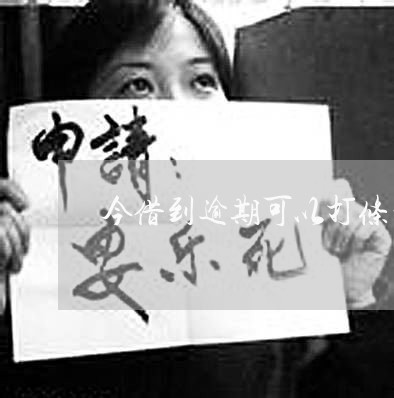 申請：
今借到逾期可以打
安乐死